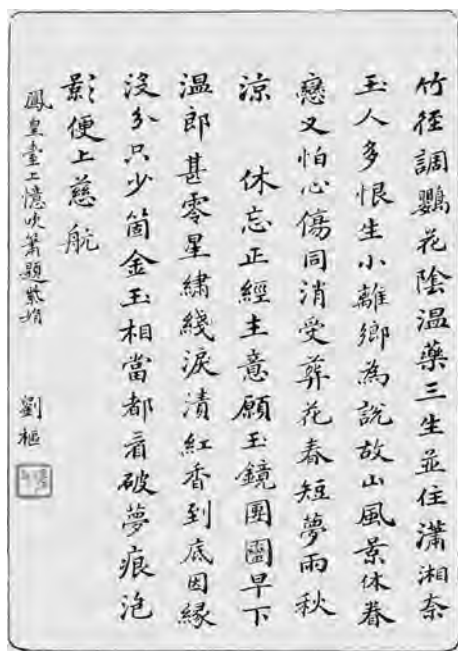 竹徑調鸚花陰温藥三生並住瀟湘奈
玉人多恨生小離鄉為說故山風景休眷
戀又怕心傷同消受葬花春短夢雨秋
涼　休忘正經主意願玉鏡團圞早下
温郎甚零星繡綫淚漬紅香到底因緣
沒分只少箇金玉相當都看破夢痕泡
影便上慈航
鳳皇臺上憶吹簫題紫鵑
劉樞